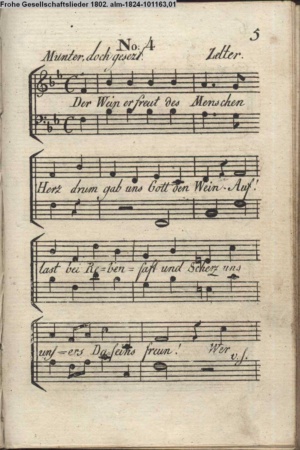 Frohe Gesellschaftslieder 1802. alm-1824-101163,01
5
No. 4
Munter, doch gesezt. Zelter.
Der Wein erfreut des Menschen
Herz drum gab uns Gott den Wein. Auf!
last bei Re=ben=saft und Scherz uns
uns=ers Daseins freun! Wer
v. s.